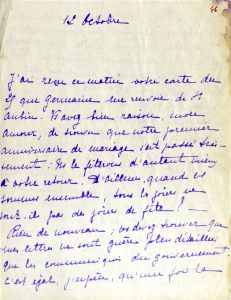 46
12 Octobre
J'ai reçu ce matin votre carte du
que Germaine me renvoie de St
Aubin. Vs avez bien raison, mon
amour, de trouver que notre premier
anniversaire de mariage s'est passé
: Ns le fêterons d'autant mieux
à votre retour! D'ailleurs, quand ns
sommes ensemble, tous les jours ne
sont-ils pas des jours de fête! —
Rien de nouveau; vs devez trouver que
mes lettres ne sont guère plus détaillées
que les communiqués du gouvernement.
C'est égal, j'espère, qu'une fois la